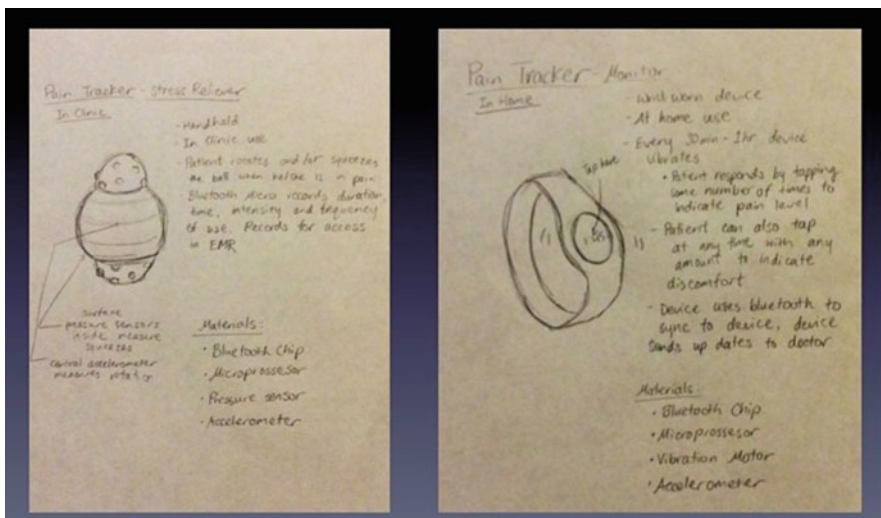 Pain Tracker - Stress Reliever
In Clinic
- Handheld
- In Clinic use
- Patient rotates and/or squeezes
the ball when he/she is in pain
- Bluetooth Micro records duration,
time, intensity and frequency
of use. Records for access
in EMR
surface
pressure sensors
inside measure
squeezes
central accelerometer
measures rotation
Materials:
· Bluetooth Chip
· Microprossesor
· Pressure sensor
· Accelerometer
Pain Tracker - Monitor
In Home
- Wrist worn device
- At home use
- Every 30min - 1hr device
vibrates
• Patient responds by tapping
some number of times to
indicate pain level
Tap here
- Patient can also tap
at any time with any
amount to indicate
discomfort
- Device uses bluetooth to
sync to device, device
sends up dates to doctor
Materials:
· Bluetooth Chip
· Microprossesor
· Vibration Motor
· Accelerometer